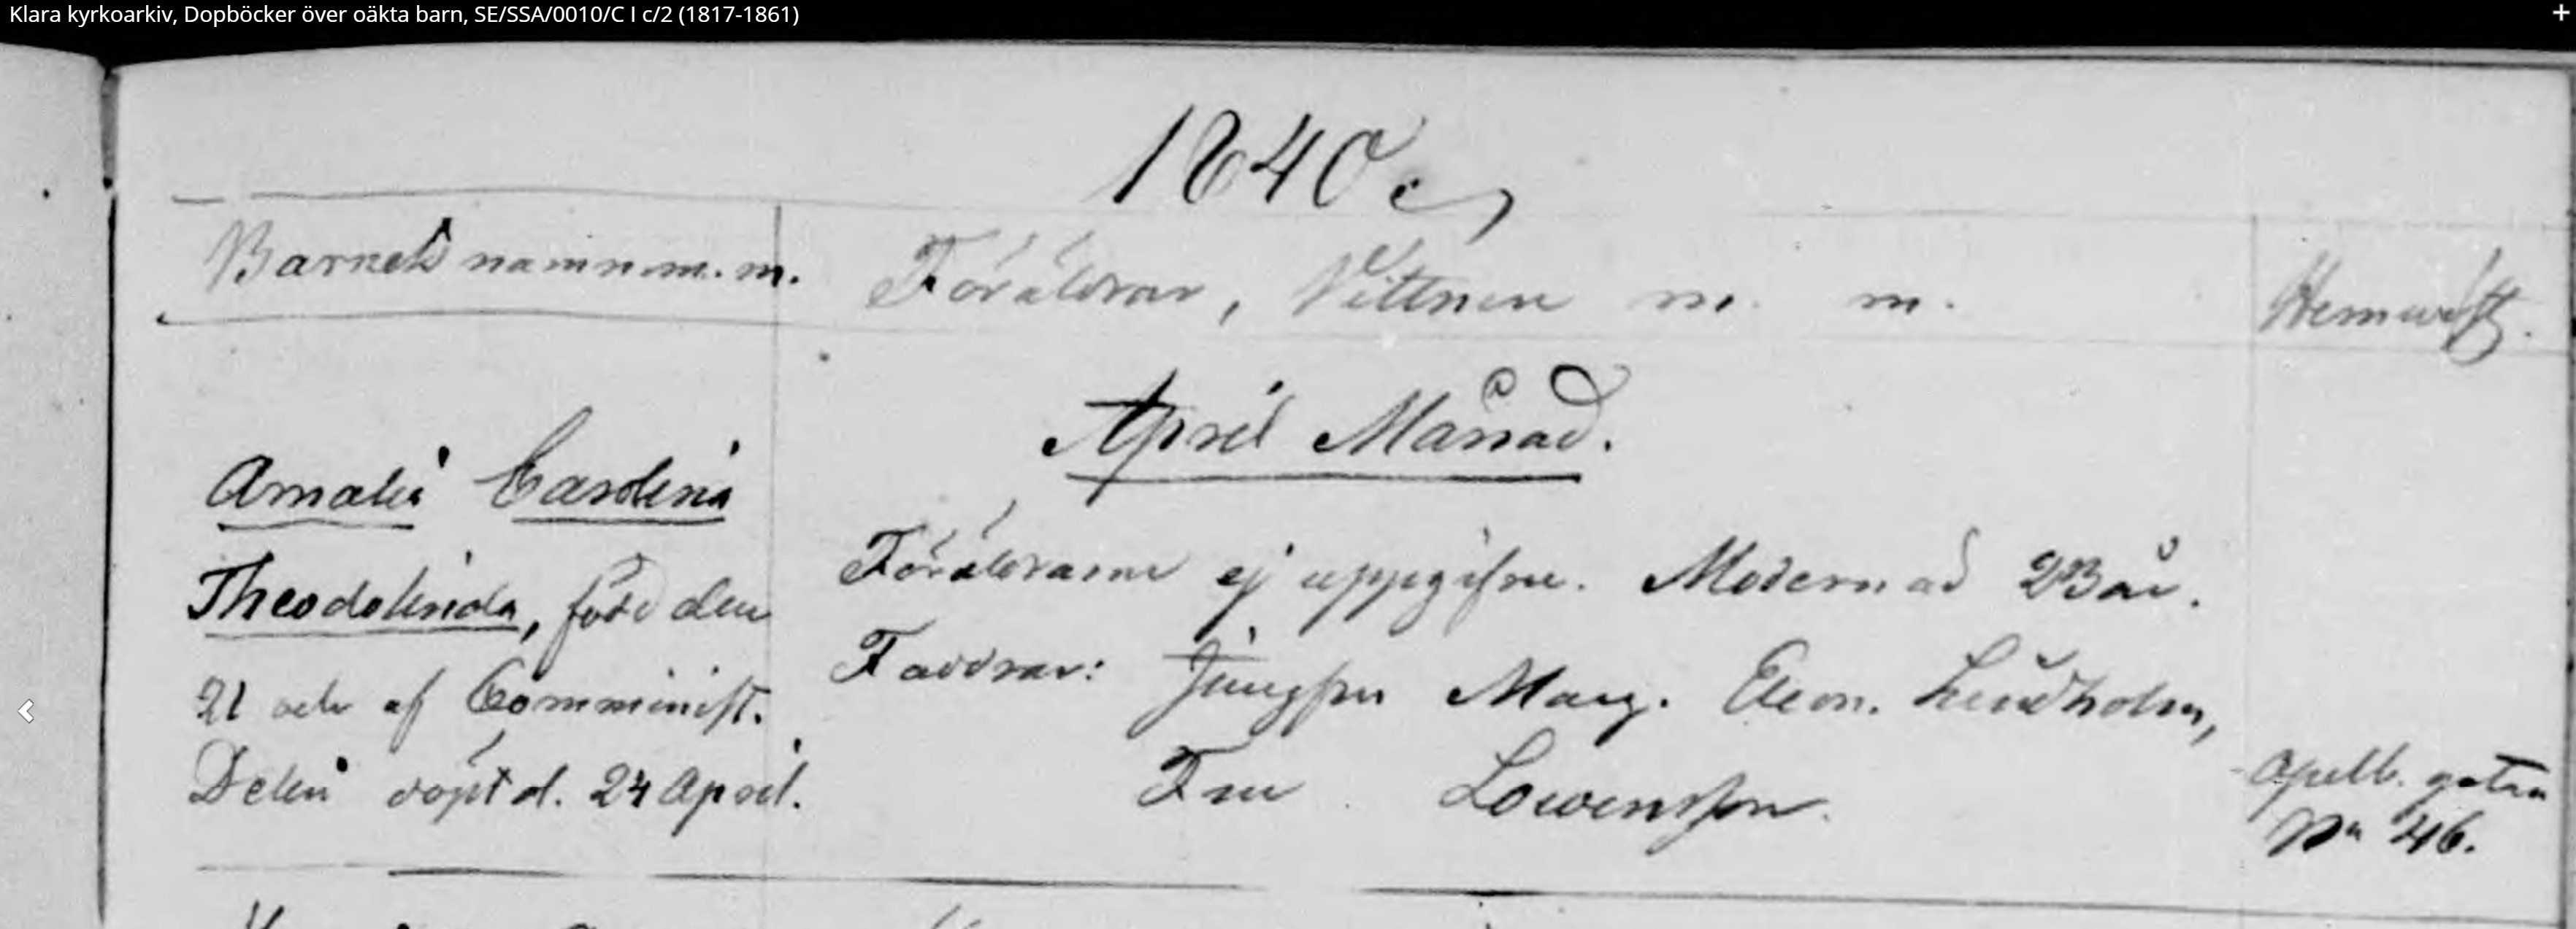 Klara kyrkoarkiv, Dopböcker över oäkta barn, SE/SSA/0010/C I c/2 (1817-1861)
1840
Barnets namn m. m.
Föräldrar, Vittnen m. m.
Hemwist.
April Månad.
Amalia Carolina
Theodolinda, född den
21 och af Comminist.
Delin döpt d. 24 April.
Föräldrarne ej uppgifne. Moderns ad 23 år.
Faddrar: Jungfru Marg. Eleon. Lindholm,
Fru Lowenson.
Apelb. gatan
No 46.